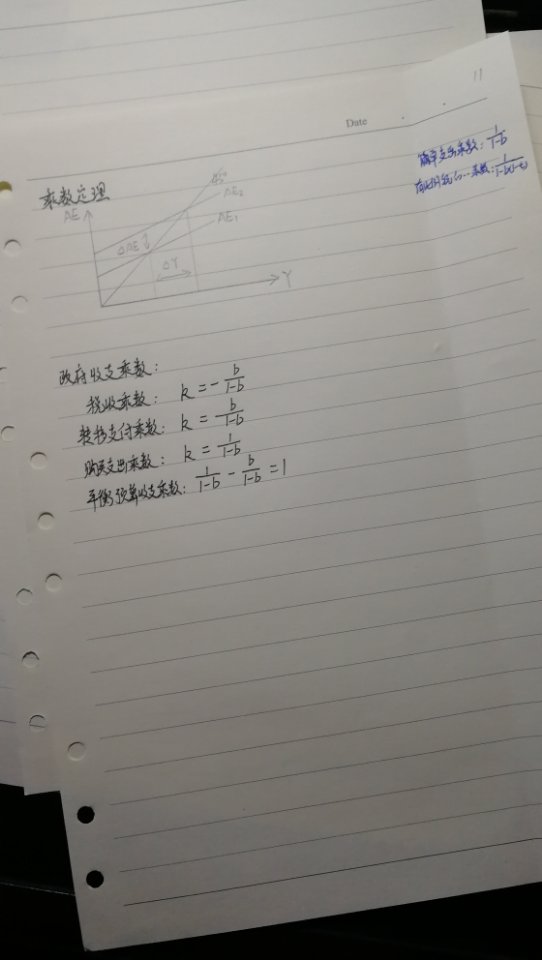 11
Date
简单支出乘数：1/(1-b)
有比例税的…乘数：1/(1-b(1-t))
乘数定理
AE
45°
AE₂
AE₁
△AE
△Y
Y
政府收支乘数：
税收乘数： k = - b/(1-b)
转移支付乘数： k = b/(1-b)
购买支出乘数： k = 1/(1-b)
平衡预算收支乘数： 1/(1-b) - b/(1-b) = 1